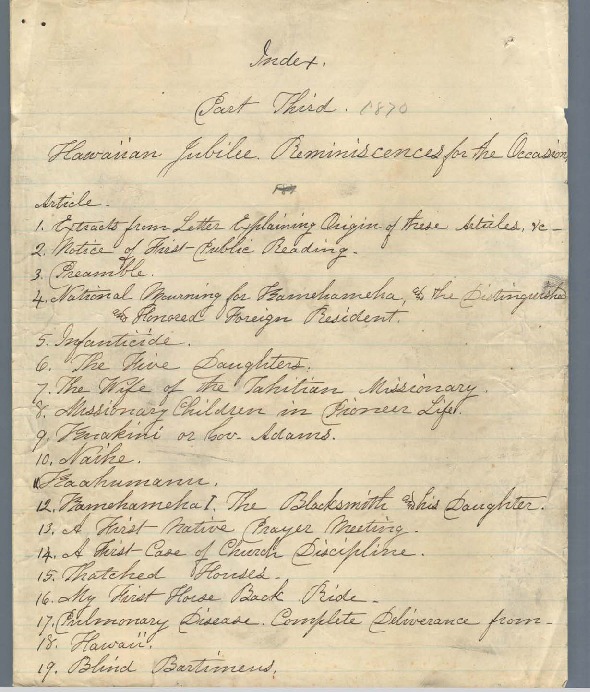 Index.
Part Third. 1870
Hawaiian Jubilee. Reminiscences for the Occasion,
Article.
1. Extracts from Letter Explaining Origin of these Articles, &c-
2. Notice of First Public Reading.
3. Preamble.
4. National Mourning for Kamehameha, & the Distinguished
& Honored Foreign Resident.
5. Infanticide.
6. The Five Daughters.
7. The Wife of the Tahitian Missionary.
8. Missionary Children in Pioneer Life.
9. Kuakini or Gov. Adams.
10. Naihe.
11 Kaahumanu.
12. Kamehameha I. The Blacksmith & his Daughter.
13. A First Native Prayer Meeting.
14. A First Case of Church Discipline.
15. Thatched Houses.
16. My First Horse Back Ride.
17. Pulmonary Disease. Complete Deliverance from-
18. Hawaii.
19. Blind Bartimeus.